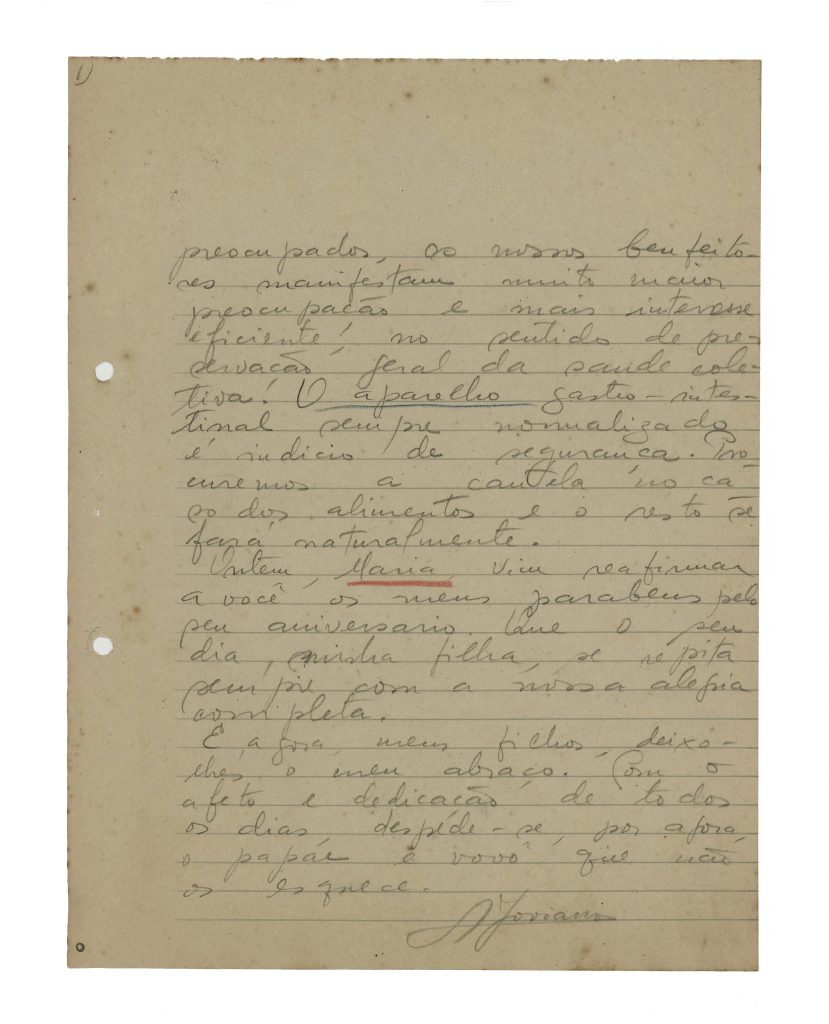 1)
preocupados, os nossos benfeito-
res manifestam muito maior
preocupação e mais interesse
eficiente, no sentido de pre-
servação geral da saude cole-
tiva. O aparelho gastro-intes-
tinal sempre normalizado
é indicio de segurança. Pro-
curemos a cautela no ca-
so dos alimentos e o resto se
fará naturalmente.
Ontem, Maria, vim reafirmar
a você os meus parabens pelo
seu aniversario. Que o seu
dia, minha filha, se repita
sempre com a nossa alegria
completa.
E, agora, meus filhos, deixo-
lhes o meu abraço. Com o
afeto e dedicação de todos
os dias, despéde-se, por agora,
o papae e vovô que não
os esquece.
A Joviano